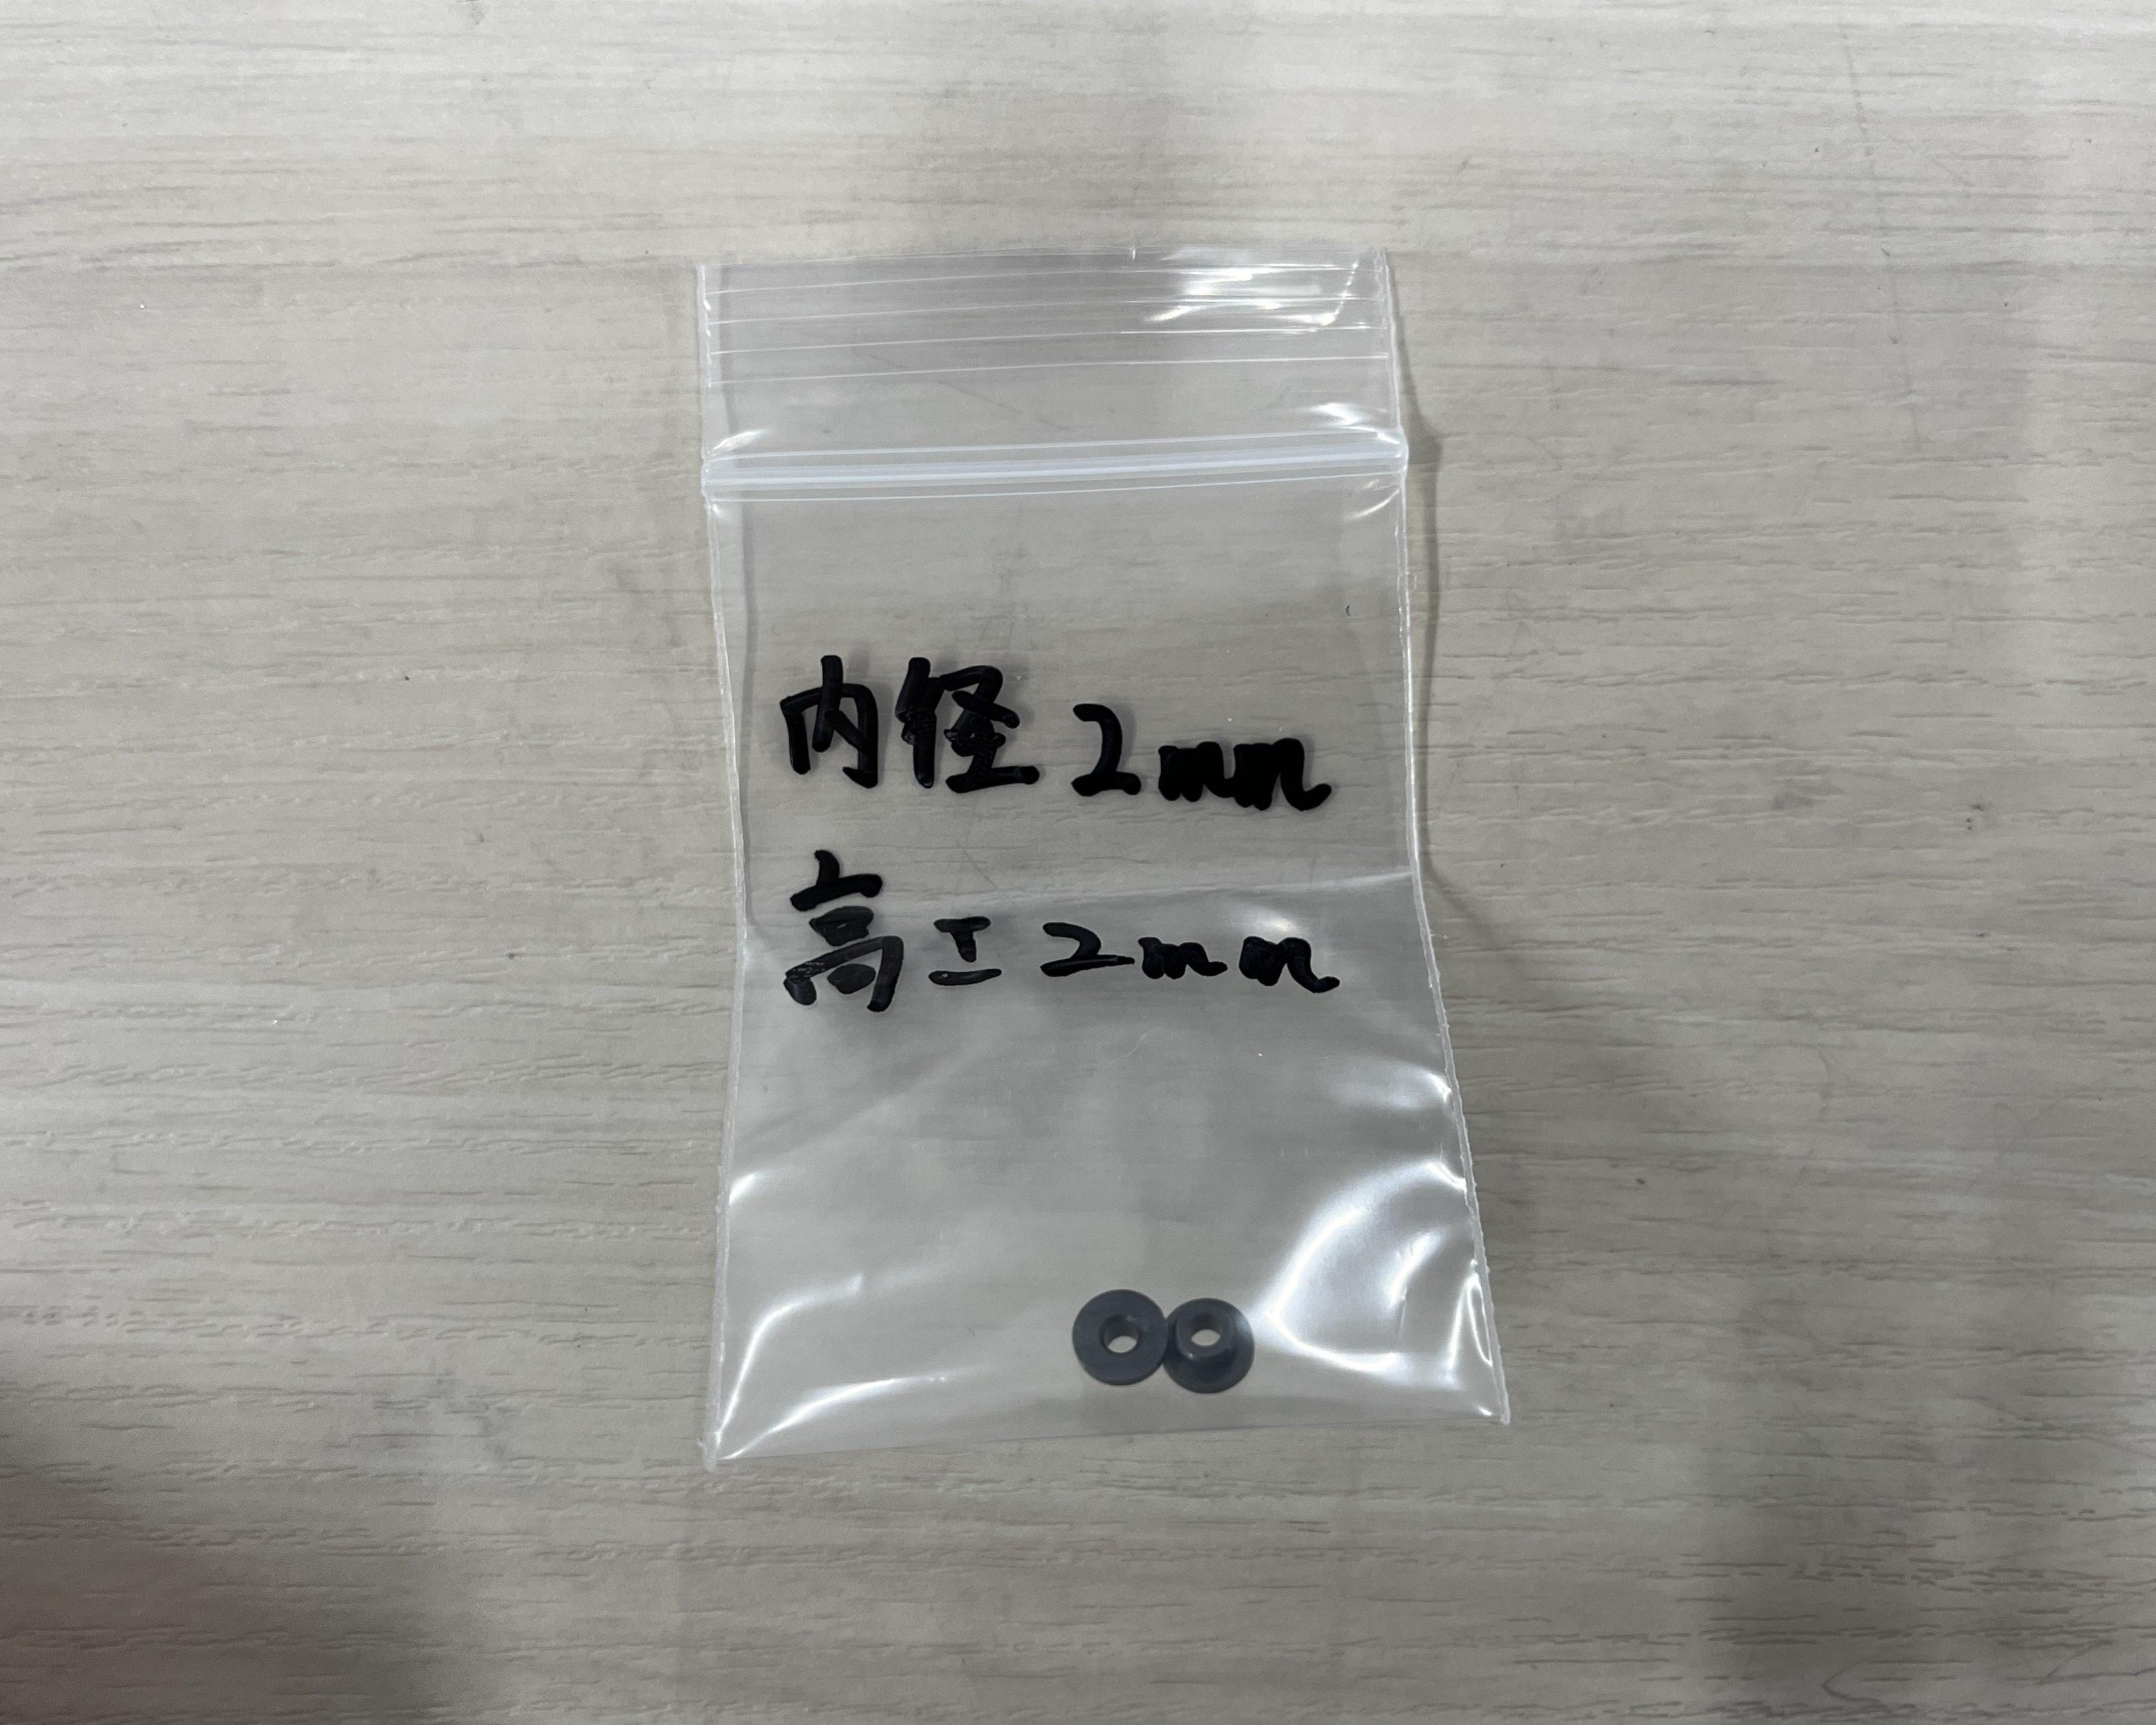 内径 2mm
高エ 2mm